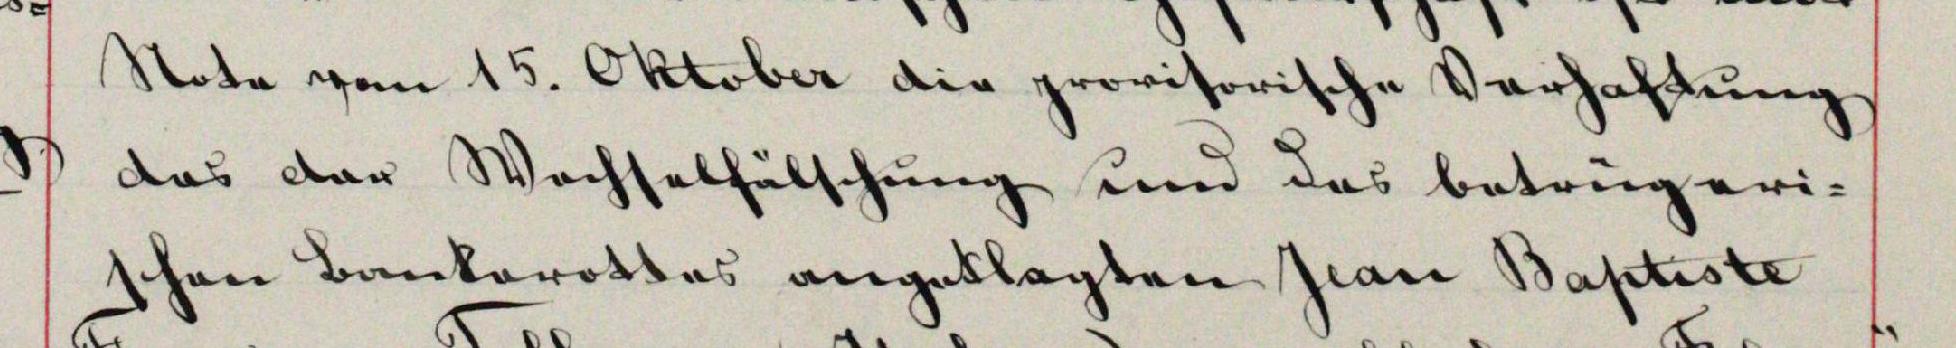 Note vom 15. Oktober die provisorische Verhaftung
des der Wechselfälschung und des betrügeri-
schen Bankerottes angeklagten Jean Baptiste